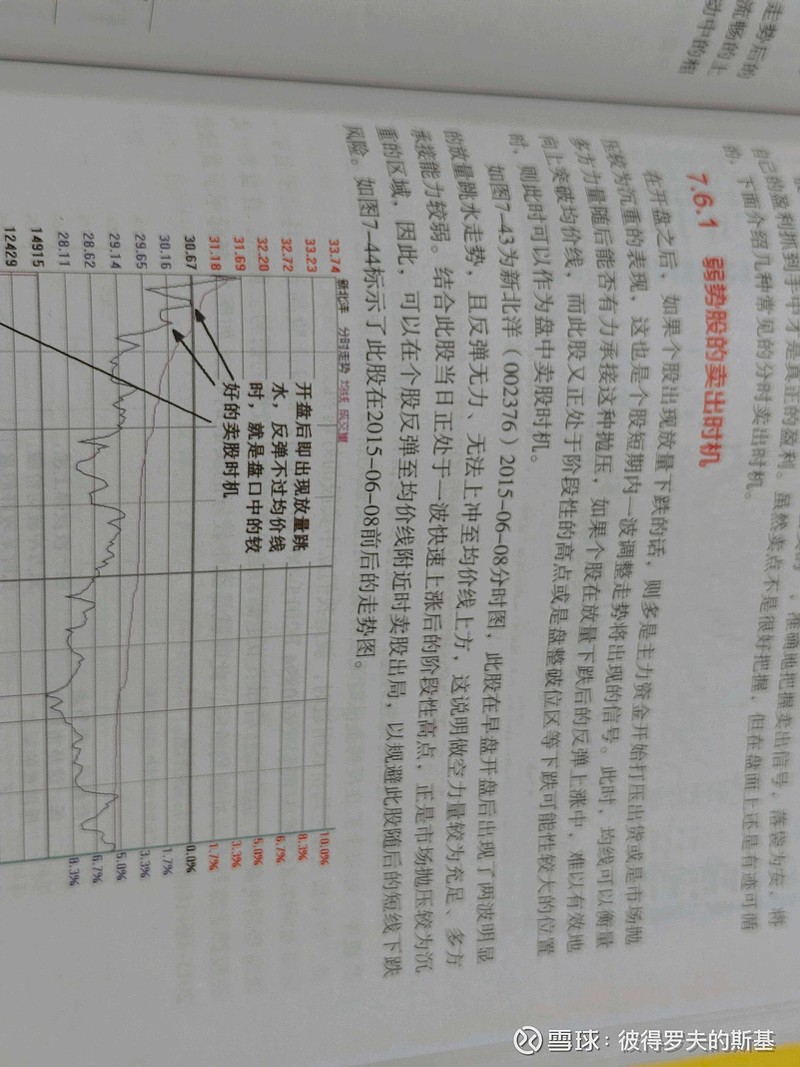 走势后的
流畅的上
动中的相
自己的盈利抓到手中才是真正的盈利。虽然卖点不是很好把握，但在盘面上还是有迹可循
的，下面介绍几种常见的分时卖出时机。
7.6.1 弱势股的卖出时机
在开盘之后，如果个股出现放量下跌的话，则多是主力资金开始打压出货或是市场抛
压较为沉重的表现，这也是个股短期内一波调整走势将出现的信号。此时，均线可以衡量
多方力量随后能否有力承接这种抛压，如果个股在放量下跌后的反弹上涨中，难以有效地
向上突破均价线，而此股又正处于阶段性的高点或是盘整破位区等下跌可能性较大的位置
时，则此时可以作为盘中卖股时机。
如图7-43为新北洋（002376）2015-06-08分时图，此股在早盘开盘后出现了两波明显
的放量跳水走势，且反弹无力、无法上冲至均价线上方，这说明做空力量较为充足、多方
承接能力较弱。结合此股当日正处于一波快速上涨后的阶段性高点，正是市场抛压较为沉
重的区域，因此，可以在个股反弹至均价线附近时卖股出局，以规避此股随后的短线下跌
风险。如图7-44标示了此股在2015-06-08前后的走势图。
新北洋 分时走势 均线 成交量
33.74 10.0%
33.23 8.3%
32.72 6.7%
32.20 5.0%
31.69 3.3%
31.18 1.7%
30.67 0.0%
30.16 1.7%
29.65 3.3%
29.14 5.0%
28.62 6.7%
28.11 8.3%
14915
12429
开盘后即出现放量跳
水，反弹不过均价线
时，就是盘口中的较
好的卖股时机
雪球：彼得罗夫的斯基